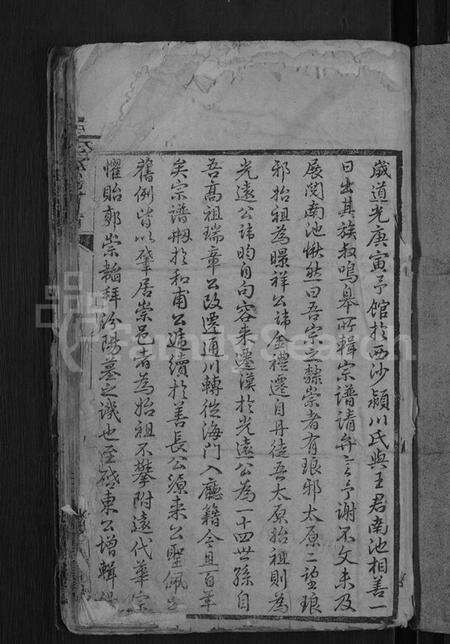 歲道光庚寅予館於西沙潁川氏與王君南池相善一
日出其族叔鳴皋所輯宗譜請弁言予謝不文未及
展閱南池愀然曰吾宗之隸崇者有琅邪太原二望琅
邪始祖為曝祥公諱金禮遷自丹徒吾太原始祖則為
光遠公諱昀自句容來遷溪於光遠公為一十四世孫自
吾高祖瑞章公改遷通川轉從海門入廳籍今且百年
矣宗譜刱於和甫公遞續於善長公源來公聖佩公
舊例皆以肇居崇邑者為始祖不攀附遠代華宗
懼貽郭崇韜拜汾陽墓之譏也至啟東公增輯
FamilySearch